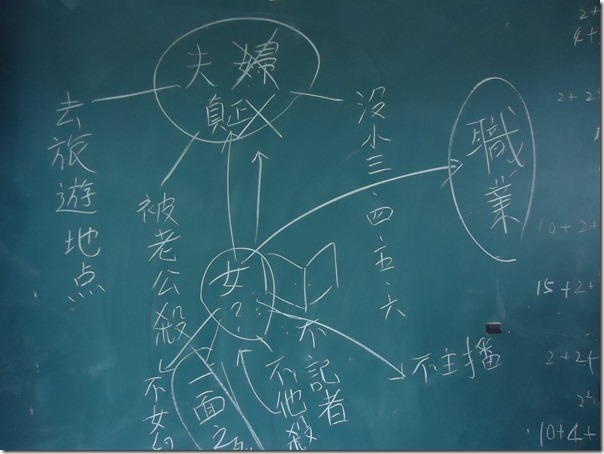 夫婦
真正
去旅遊地点
被老公殺
沒小三.四.五.六
職業
女?
不主播
不記者
不他殺
一面之
不女
2+
4+
2+2
10+2+
15+2+
2+2+
10+4+